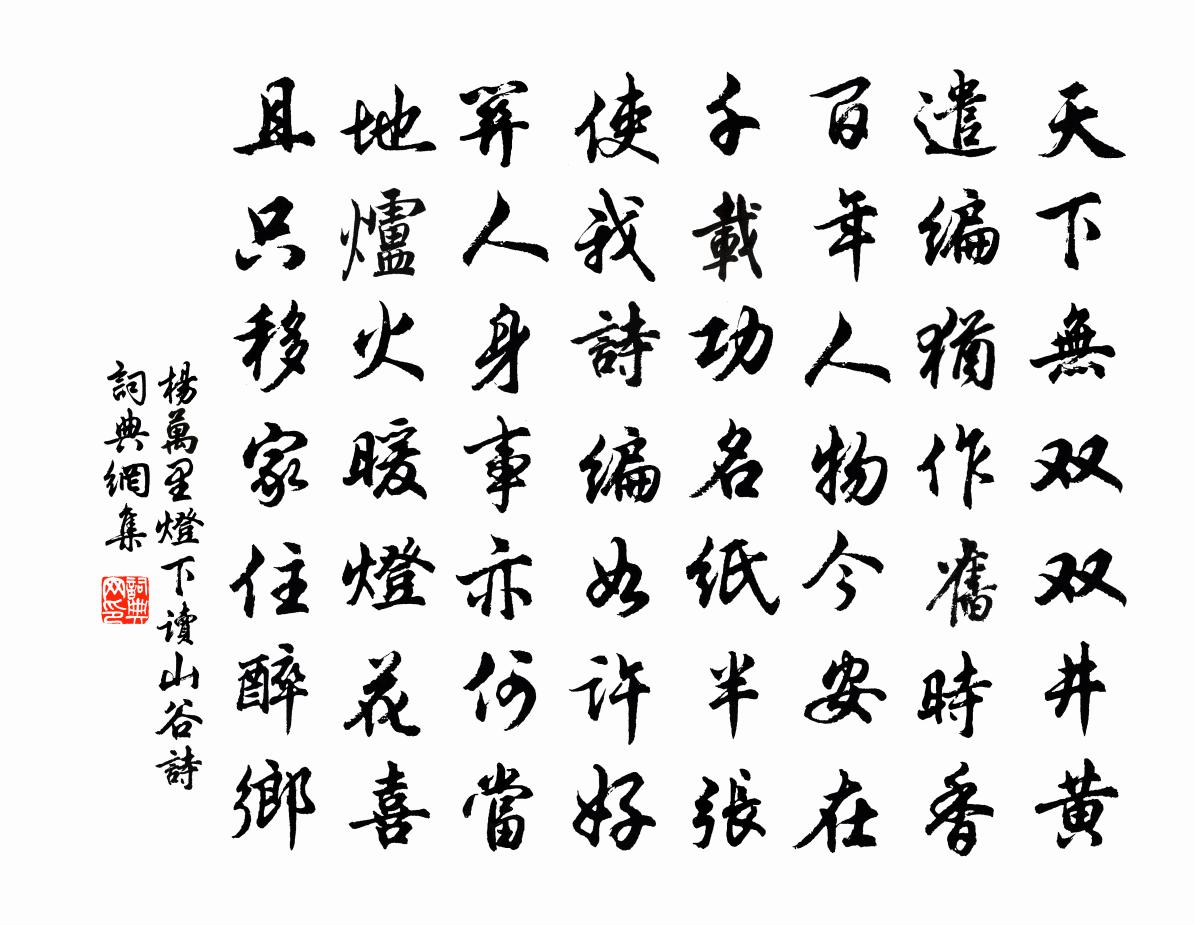 天下無双双井黄
遣編猶作舊時香
百年人物今安在
千載功名紙半張
使我詩編如許好
關人身事亦何當
地爐火暖燈花喜
且只移家住醉鄉
楊萬里燈下讀山谷詩
詞典網集
詞典网印